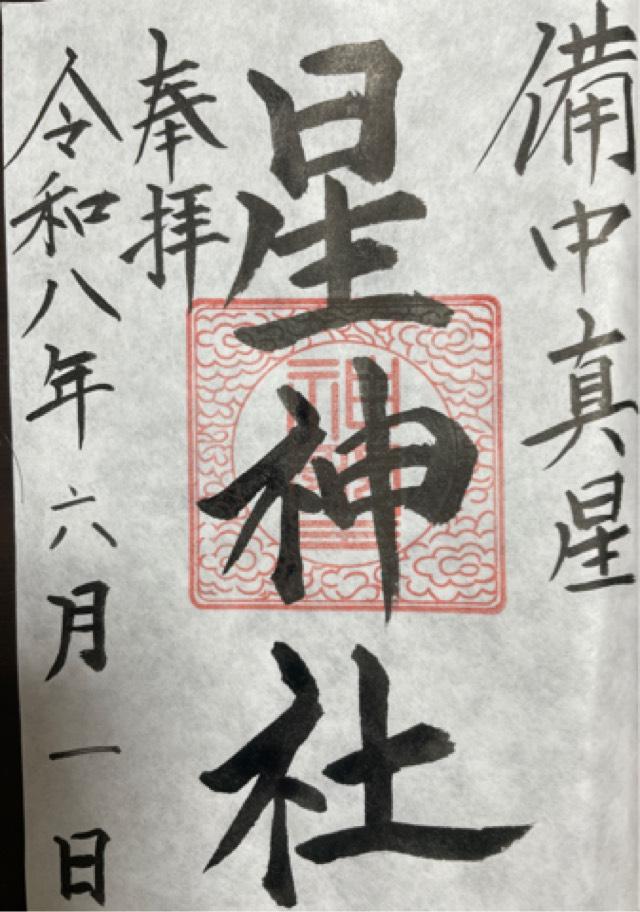 備中真星
星神社
奉拝
令和八年六月一日